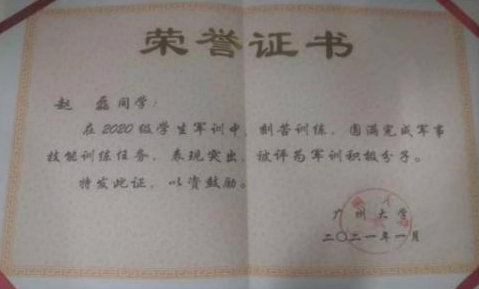 荣誉证书
赵 磊同学：
在2020级学生军训中，刻苦训练，圆满完成军事
技能训练任务，表现突出，被评为军训积极分子。
特发此证，以资鼓励。
广州大学
二〇二一年一月